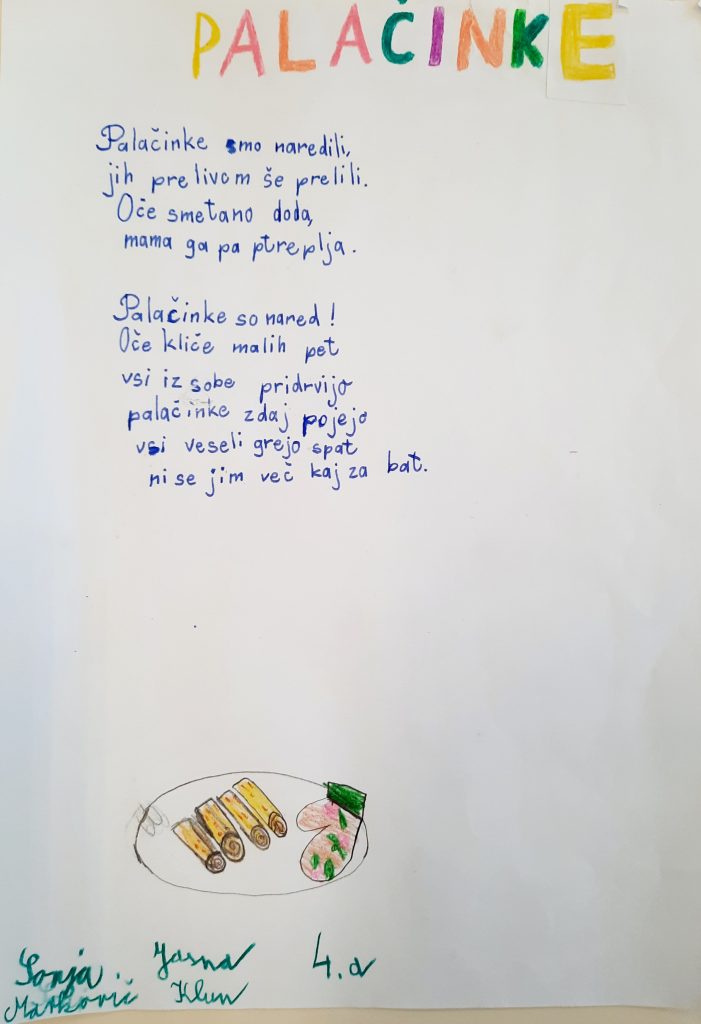 PALAČINKE
Palačinke smo naredili,
jih prelivom še prelili.
Oče smetano doda,
mama ga pa ptreplja.
Palačinke so nared!
Oče kliče malih pet
vsi iz sobe pridrvijo
palačinke zdaj pojejo
vsi veseli grejo spat
ni se jim več kaj za bat.
Sonja Jasna 4.a
Matković Klun